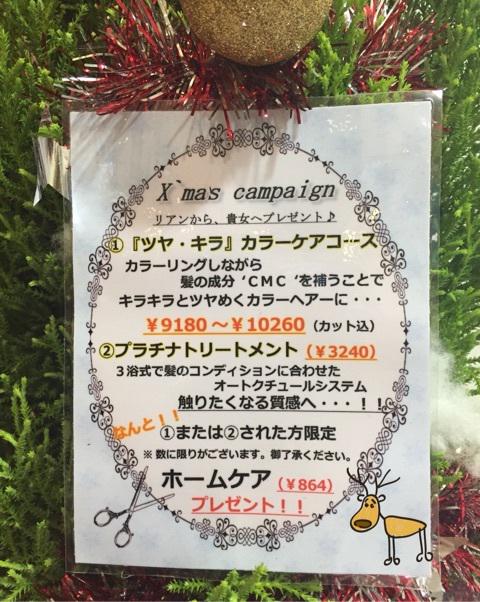 X`mas campaign
リアンから、貴女へプレゼント♪
①『ツヤ・キラ』カラーケアコース
カラーリングしながら
髪の成分‘CMC‘を補うことで
キラキラとツヤめくカラーヘアーに・・・
￥9180～￥10260（カット込）
②プラチナトリートメント（￥3240）
３浴式で髪のコンディションに合わせた
オートクチュールシステム
触りたくなる質感へ・・・！！
なんと！！
①または②された方限定
※ 数に限りがございます。御了承ください。
ホームケア（￥864）
プレゼント！！